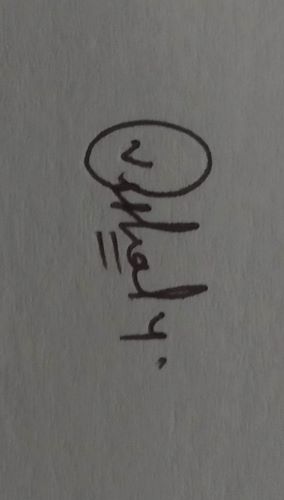 Vishal y.